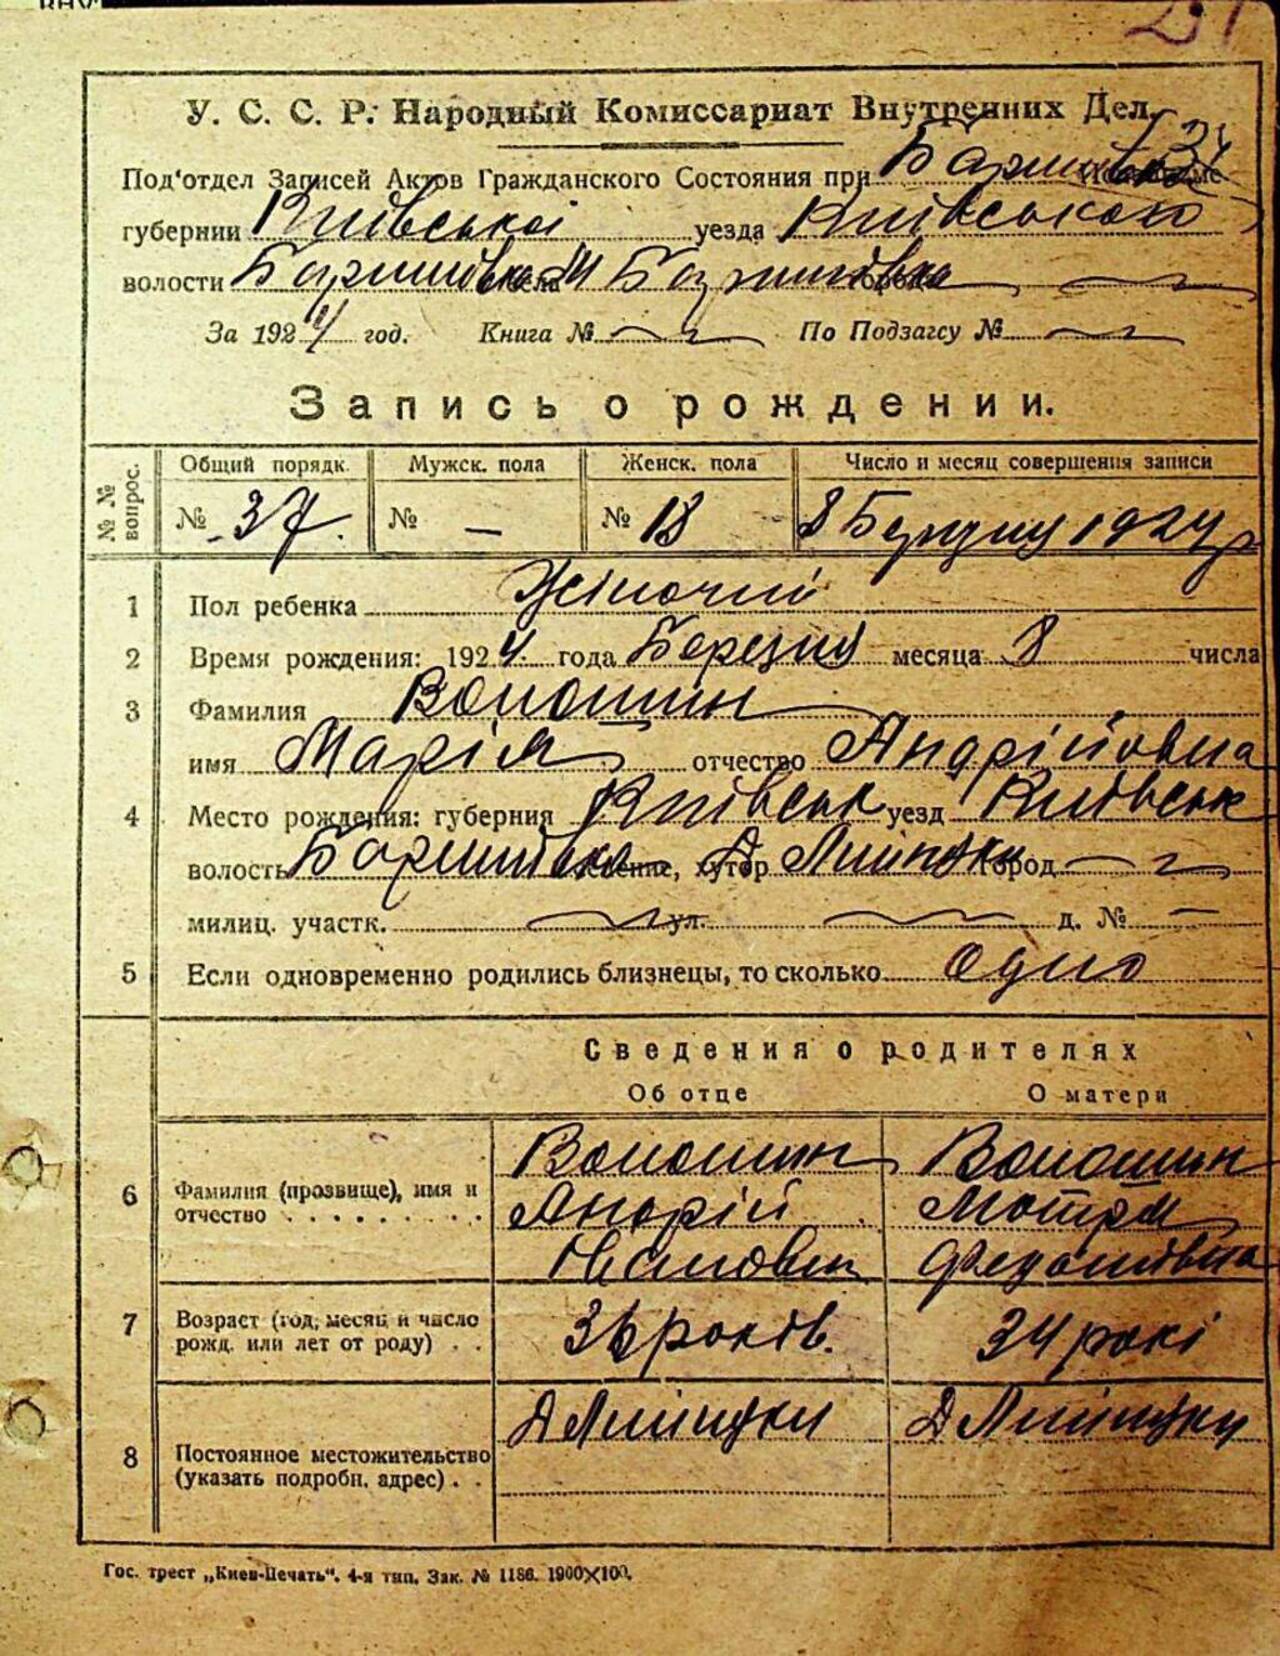 У. С. С. Р. Народный Комиссариат Внутренних Дел.
Под'отдел Записей Актов Гражданского Состояния при
губернии Київської уезда Київського
волости Баришівка села М Баришівка
За 1924 год. Книга № По Подзагсу №
Запись о рождении.
№ № вопрос.
Общий порядк. Мужск. пола Женск. пола Число и месяц совершения записи
№ 37. № — № 18 8 Березня 1924 р
1 Пол ребенка Жіночий
2 Время рождения: 1924 года Березня месяца 8 числа
3 Фамилия Волошин
имя Марія отчество Андріївна
4 Место рождения: губерния Київськ уезд Київськ
волость Баришівка селение, хутор Д город
милиц. участк. ул. д. № —
5 Если одновременно родились близнецы, то сколько одно
Сведения о родителях
Об отце О матери
Волошин Волошин
6 Фамилия (прозвище), имя и Андрій Мотря
отчество . . . . . . . . .
7 Возраст (год, месяц и число 36 років. 34 рокі
рожд. или лет от роду) . .
8 Постоянное местожительство
(указать подробн. адрес) . .
Гос. трест „Киев-Печать“. 4-я тип. Зак. № 1186. 1900×100.